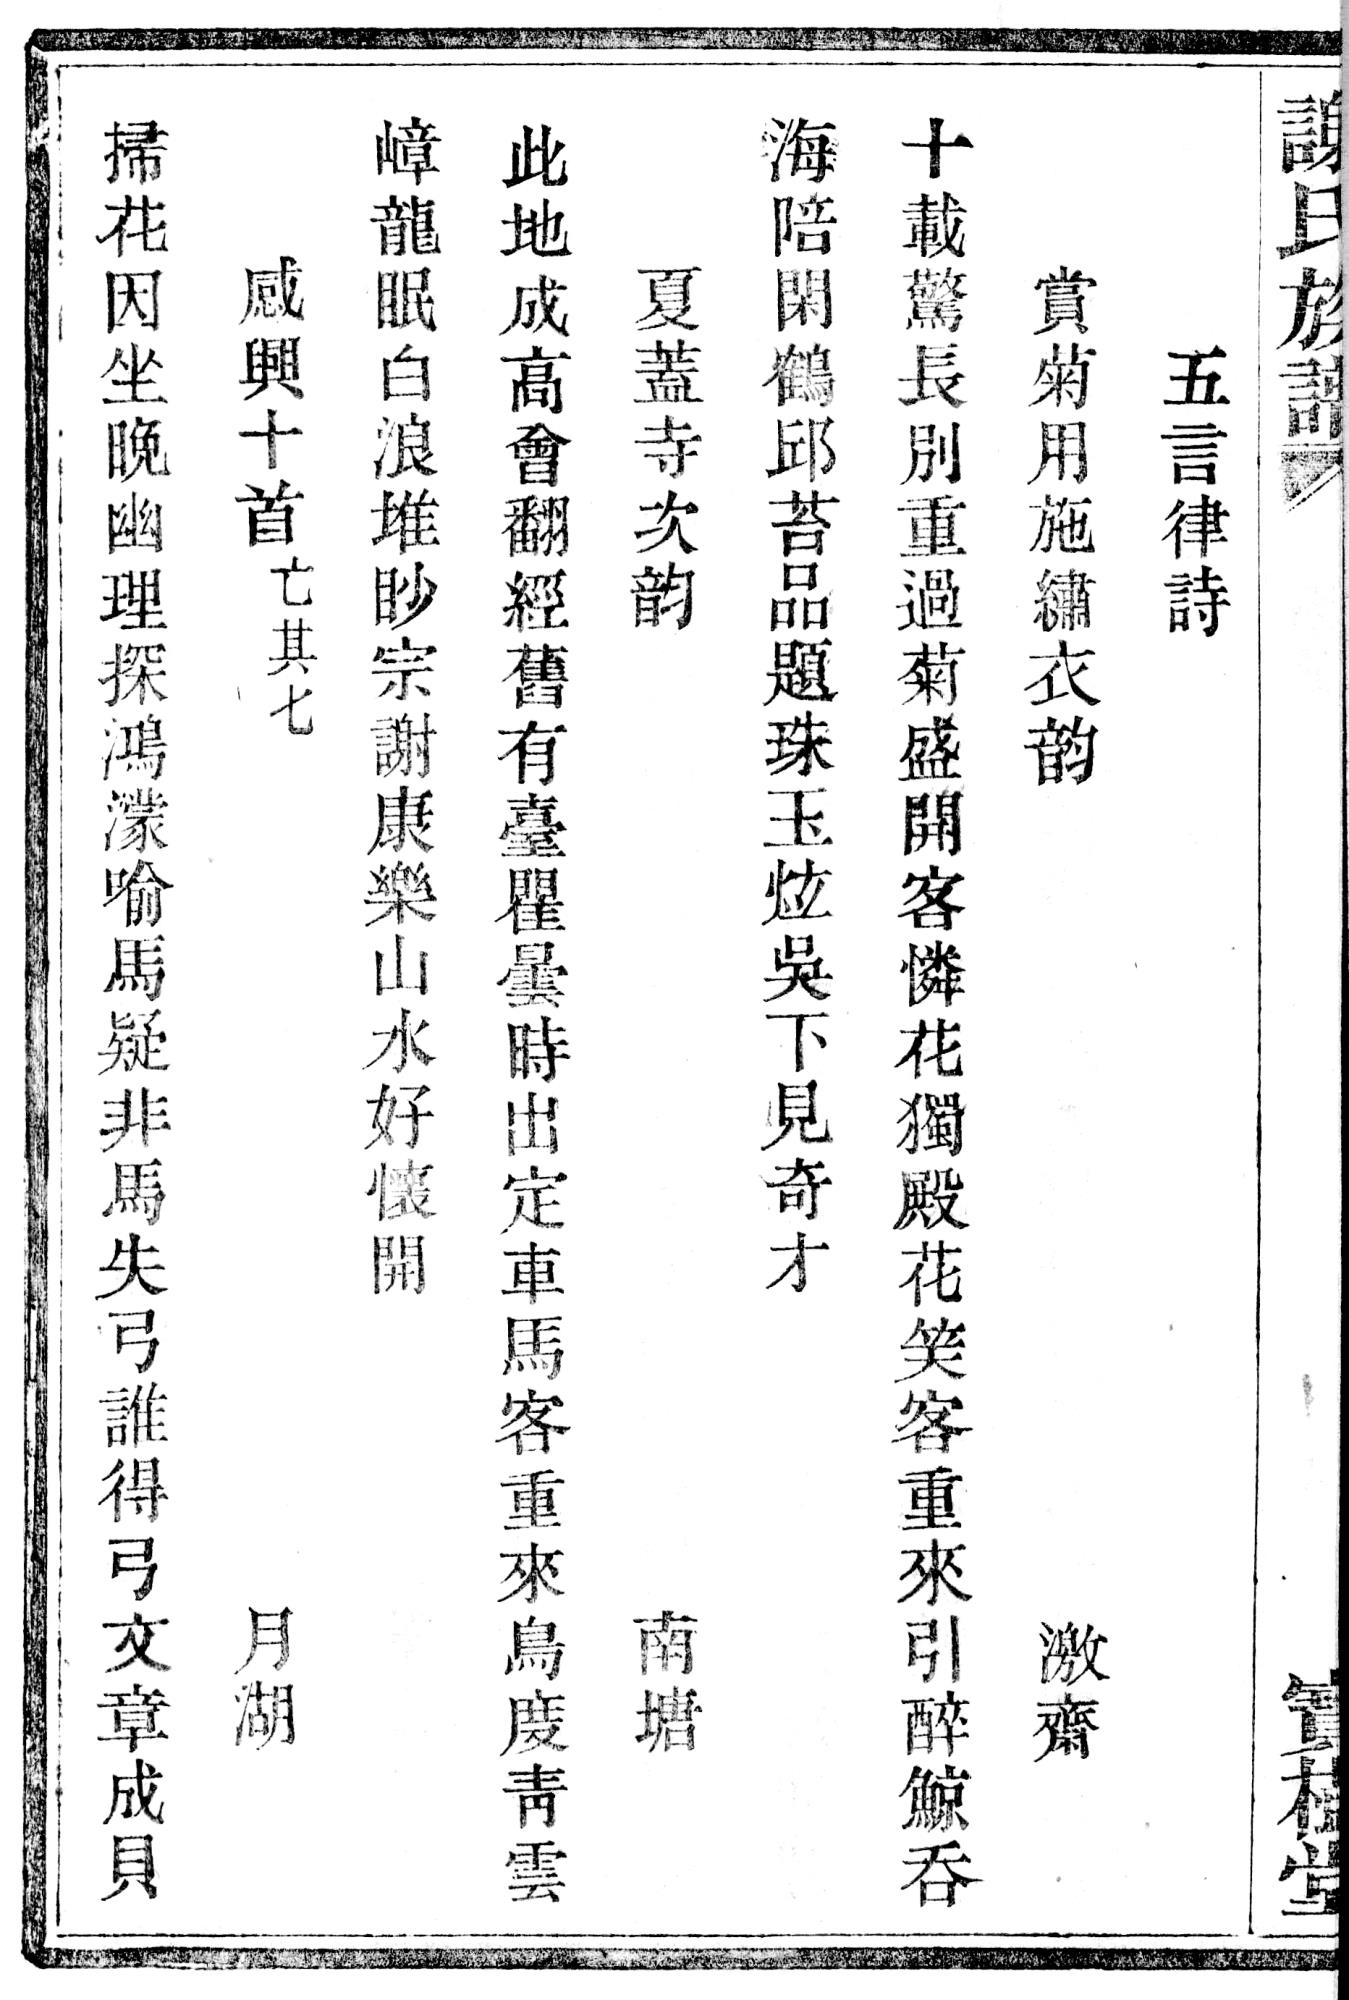 謝氏族譜
寶樹堂
五言律詩
賞菊用施繡衣韵 激齋
十載驚長別重過菊盛開客憐花獨殿花笑客重來引醉鯨吞
海陪閑鶴邱苔品題珠玉炫吳下見奇才
夏蓋寺次韵 南塘
此地成高會翻經舊有臺瞿曇時出定車馬客重來鳥度青雲
嶂龍眠白浪堆眇宗謝康樂山水好懷開
感興十首亡其七 月湖
掃花因坐晚幽理探鴻濛喻馬疑非馬失弓誰得弓文章成貝